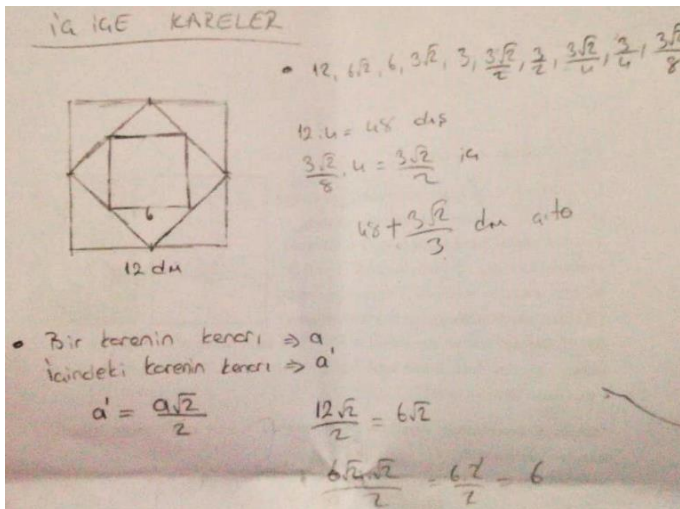 İÇ İÇE KARELER
• 12, 6√2, 6, 3√2, 3, 3√2/2, 3/2, 3√2/4, 3/4, 3√2/8
12.4 = 48 dış
3√2/8 . 4 = 3√2/2 iç
48 + 3√2/3 dm
6
12 dm
• Bir karenin kenarı ⇒ a
İçindeki karenin kenarı ⇒ a'
a' = a√2/2
12√2/2 = 6√2
6√2.√2/2 = 6.2/2 = 6